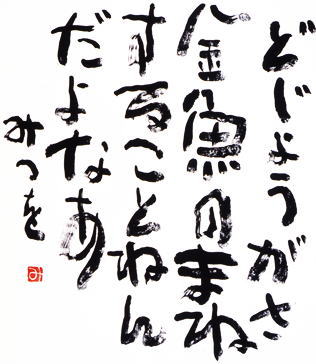 どじょうがさ
金魚のまね
することねん
だよなあ
みつを
み